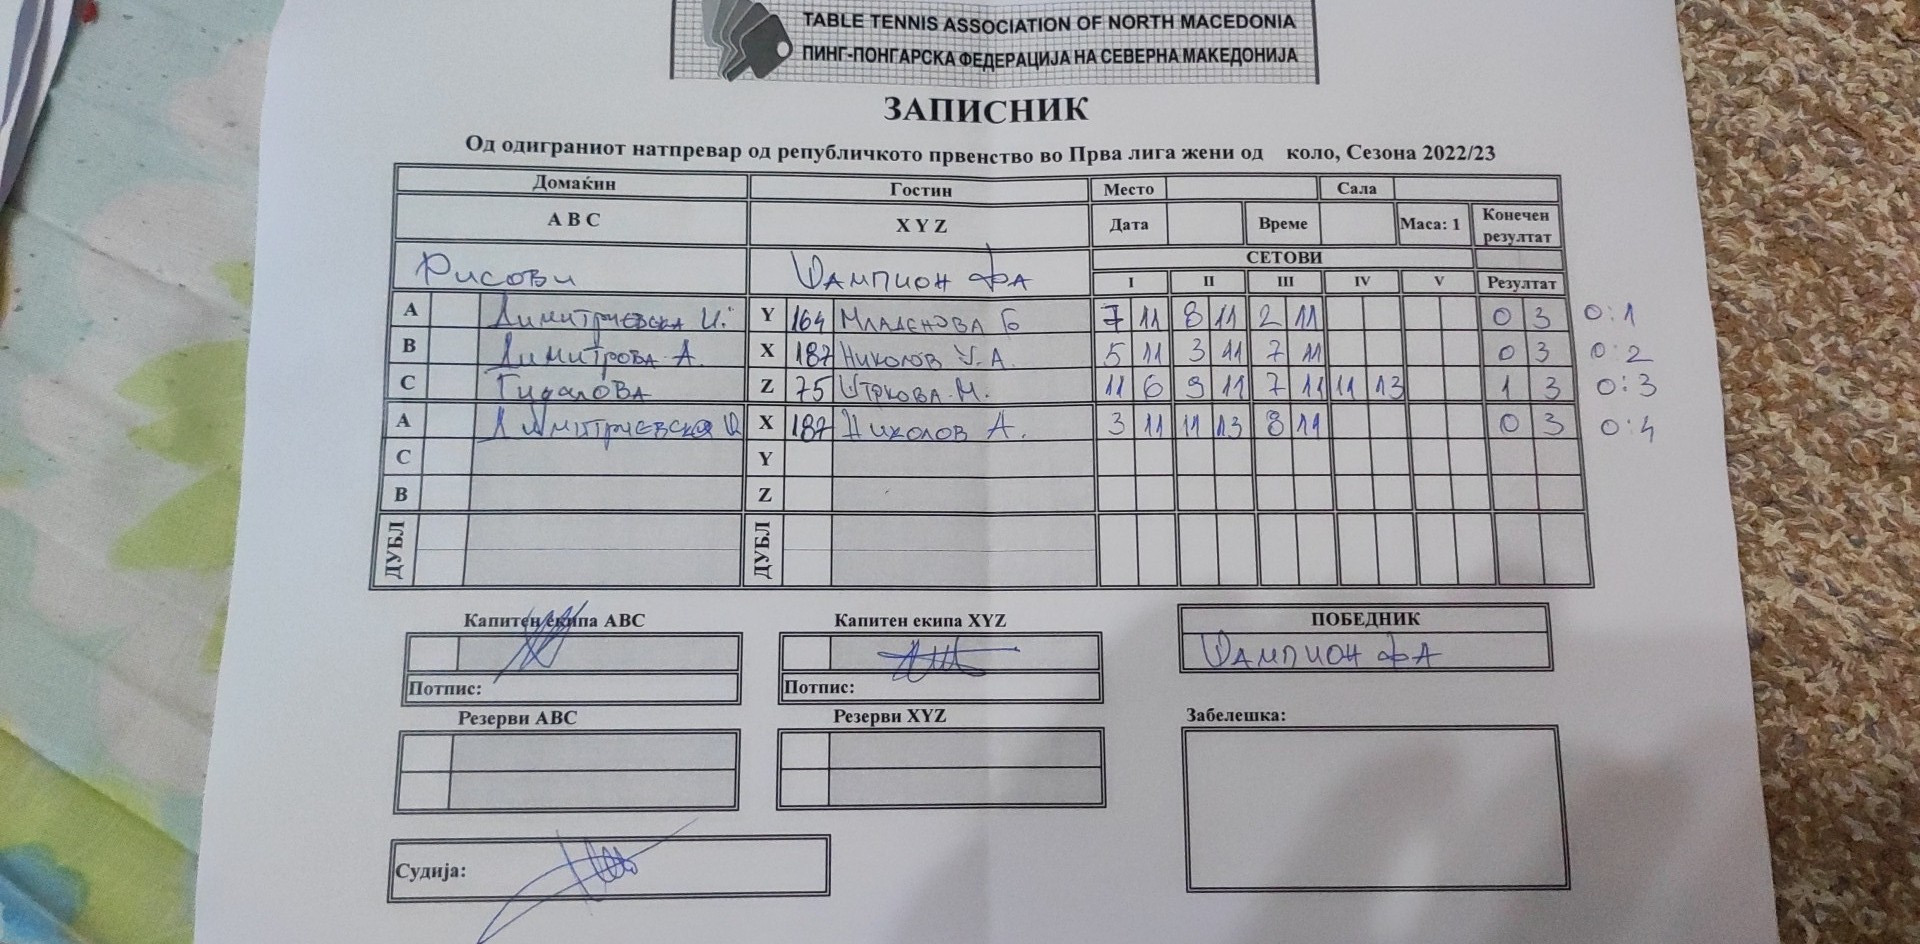 TABLE TENNIS ASSOCIATION OF NORTH MACEDONIA
ПИНГ-ПОНГАРСКА ФЕДЕРАЦИЈА НА СЕВЕРНА МАКЕДОНИЈА
ЗАПИСНИК
Од одиграниот натпревар од републичкото првенство во Прва лига жени од коло, Сезона 2022/23
Домаќин Гостин Место Сала
A B C X Y Z Дата Време Маса: 1 Конечен резултат
Рисови Шампион ФА СЕТОВИ
I II III IV V Резултат
A Димитриевска И. Y 164 Младенова Б 7 11 8 11 2 11 0 3 0:1
B Димитрова А. X 187 Николов А. 5 11 3 11 7 11 0 3 0:2
C Z 75 Штркова М. 11 6 9 11 7 11 11 13 1 3 0:3
A Димитриевска И X 187 Николов А. 3 11 11 13 8 11 0 3 0:4
C Y
B Z
ДУБЛ ДУБЛ
Капитен екипа ABC Капитен екипа XYZ ПОБЕДНИК
Шампион ФА
Потпис: Потпис:
Резерви ABC Резерви XYZ Забелешка:
Судија: